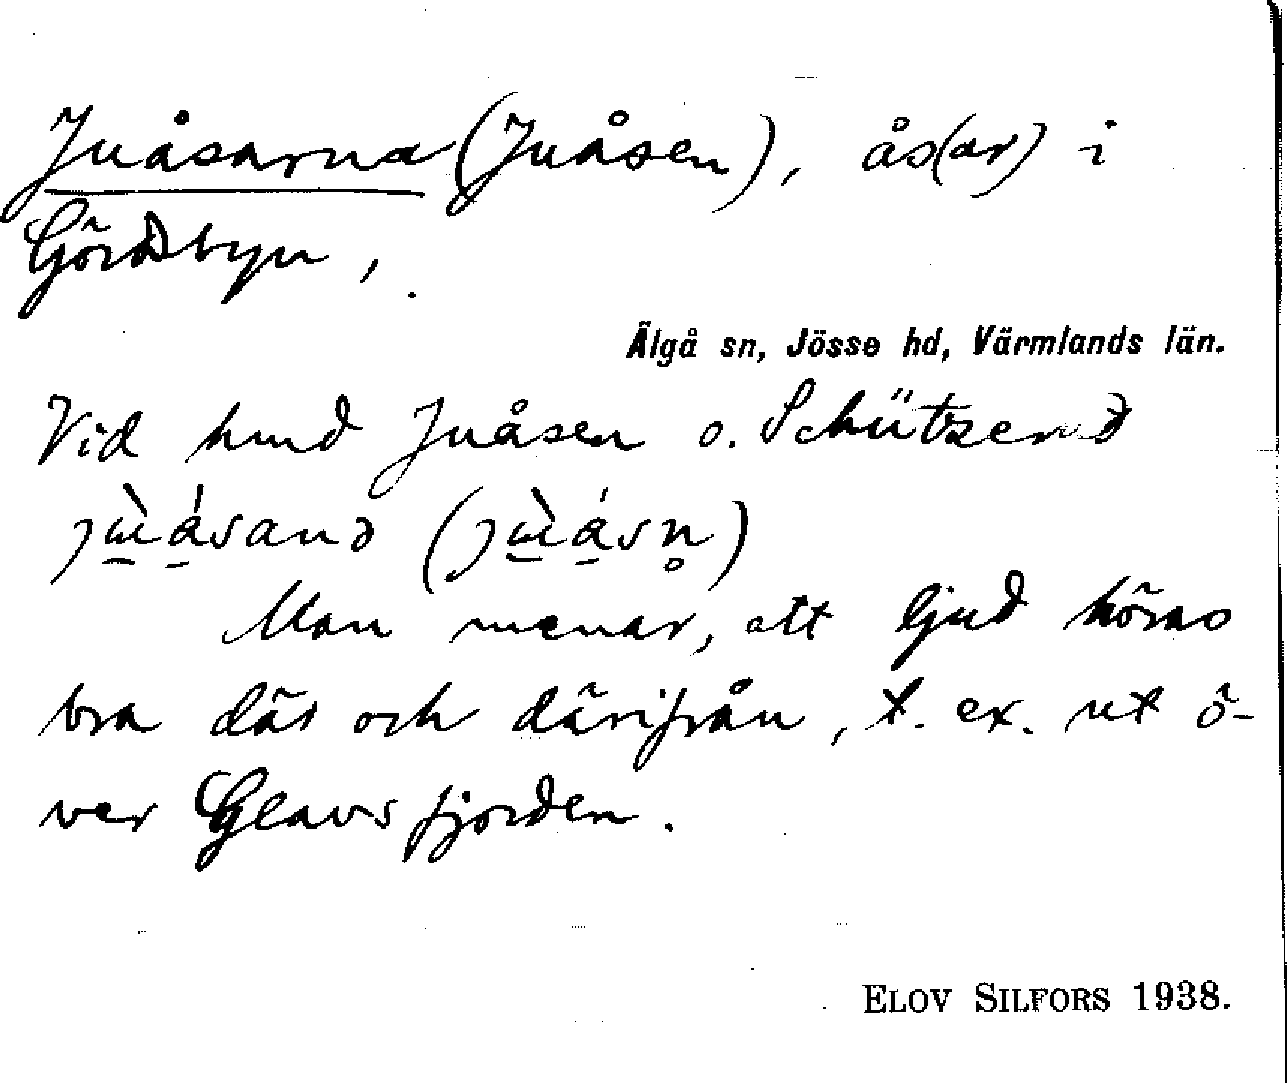 Juåsarna (Juåsen), ås(ar) i
Gördsbyn,
Älgå sn, Jösse hd, Värmlands län.
Vid hmd Juåsen o. Schützend
Man menar, att ljud höras
bra där och därifrån, t. ex. ut ö-
ver Glavsfjorden.
ELOV SILFORS 1938.